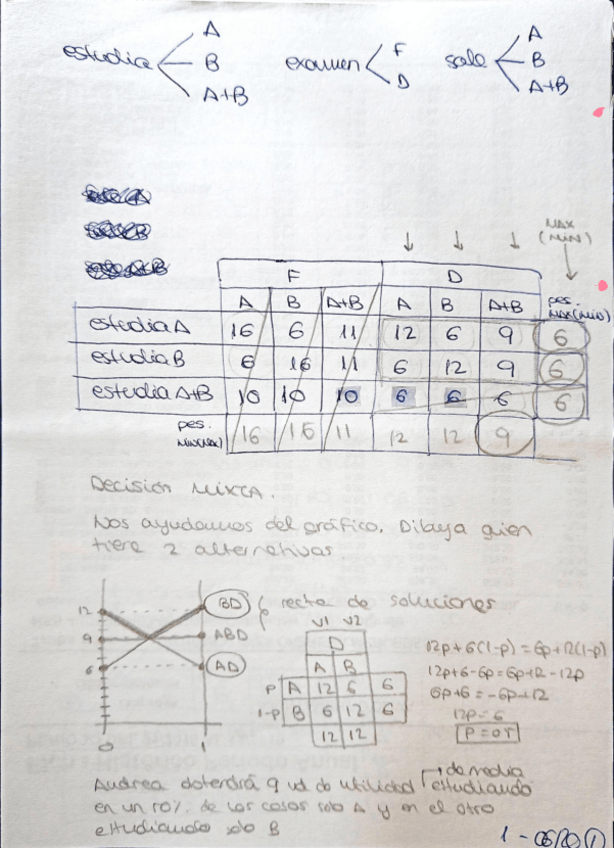 A
estudia B
A+B
examen F
D
sale A
B
A+B
MAX
(MIN)
F D
A B A+B A B A+B pes.
MAX(MIN)
estudia A 16 6 11 12 6 9 6
estudia B 6 16 11 6 12 9 6
estudia A+B 10 10 10 6 6 6 6
pes.
MIN(MAX) 16 16 11 12 12 9
Decisión MIXTA.
Nos ayudamos del gráfico. Dibuja quien
tiene 2 alternativas
12 BD recta de soluciones
9 ABD
6 AD
0 1
V1 V2
D
A B
P A 12 6 6
1-P B 6 12 6
12 12
12p+6(1-p) = 6p+12(1-p)
12p+6-6p=6p+12-12p
6p+6=-6p+12
12p=6
P=0'5
Audrea obtendrá 9 ud de utilidad de media estudiando
en un 50% de los casos solo A y en el otro
estudiando solo B